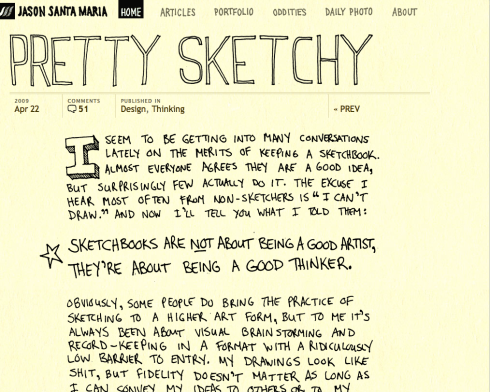 JASON SANTA MARIA HOME ARTICLES PORTFOLIO ODDITIES DAILY PHOTO ABOUT
PRETTY SKETCHY
2009 COMMENTS PUBLISHED IN
Apr 22 51 Design, Thinking « PREV
I SEEM TO BE GETTING INTO MANY CONVERSATIONS
LATELY ON THE MERITS OF KEEPING A SKETCHBOOK.
ALMOST EVERYONE AGREES THEY ARE A GOOD IDEA,
BUT SURPRISINGLY FEW ACTUALLY DO IT. THE EXCUSE I
HEAR MOST OFTEN FROM NON-SKETCHERS IS "I CAN'T
DRAW." AND NOW I'LL TELL YOU WHAT I TOLD THEM:
SKETCHBOOKS ARE NOT ABOUT BEING A GOOD ARTIST,
THEY'RE ABOUT BEING A GOOD THINKER.
OBVIOUSLY, SOME PEOPLE DO BRING THE PRACTICE OF
SKETCHING TO A HIGHER ART FORM, BUT TO ME IT'S
ALWAYS BEEN ABOUT VISUAL BRAINSTORMING AND
RECORD-KEEPING IN A FORMAT WITH A RIDICULOUSLY
LOW BARRIER TO ENTRY. MY DRAWINGS LOOK LIKE
SHIT, BUT FIDELITY DOESN'T MATTER AS LONG AS
I CAN CONVEY MY IDEAS TO OTHERS OR TO MY